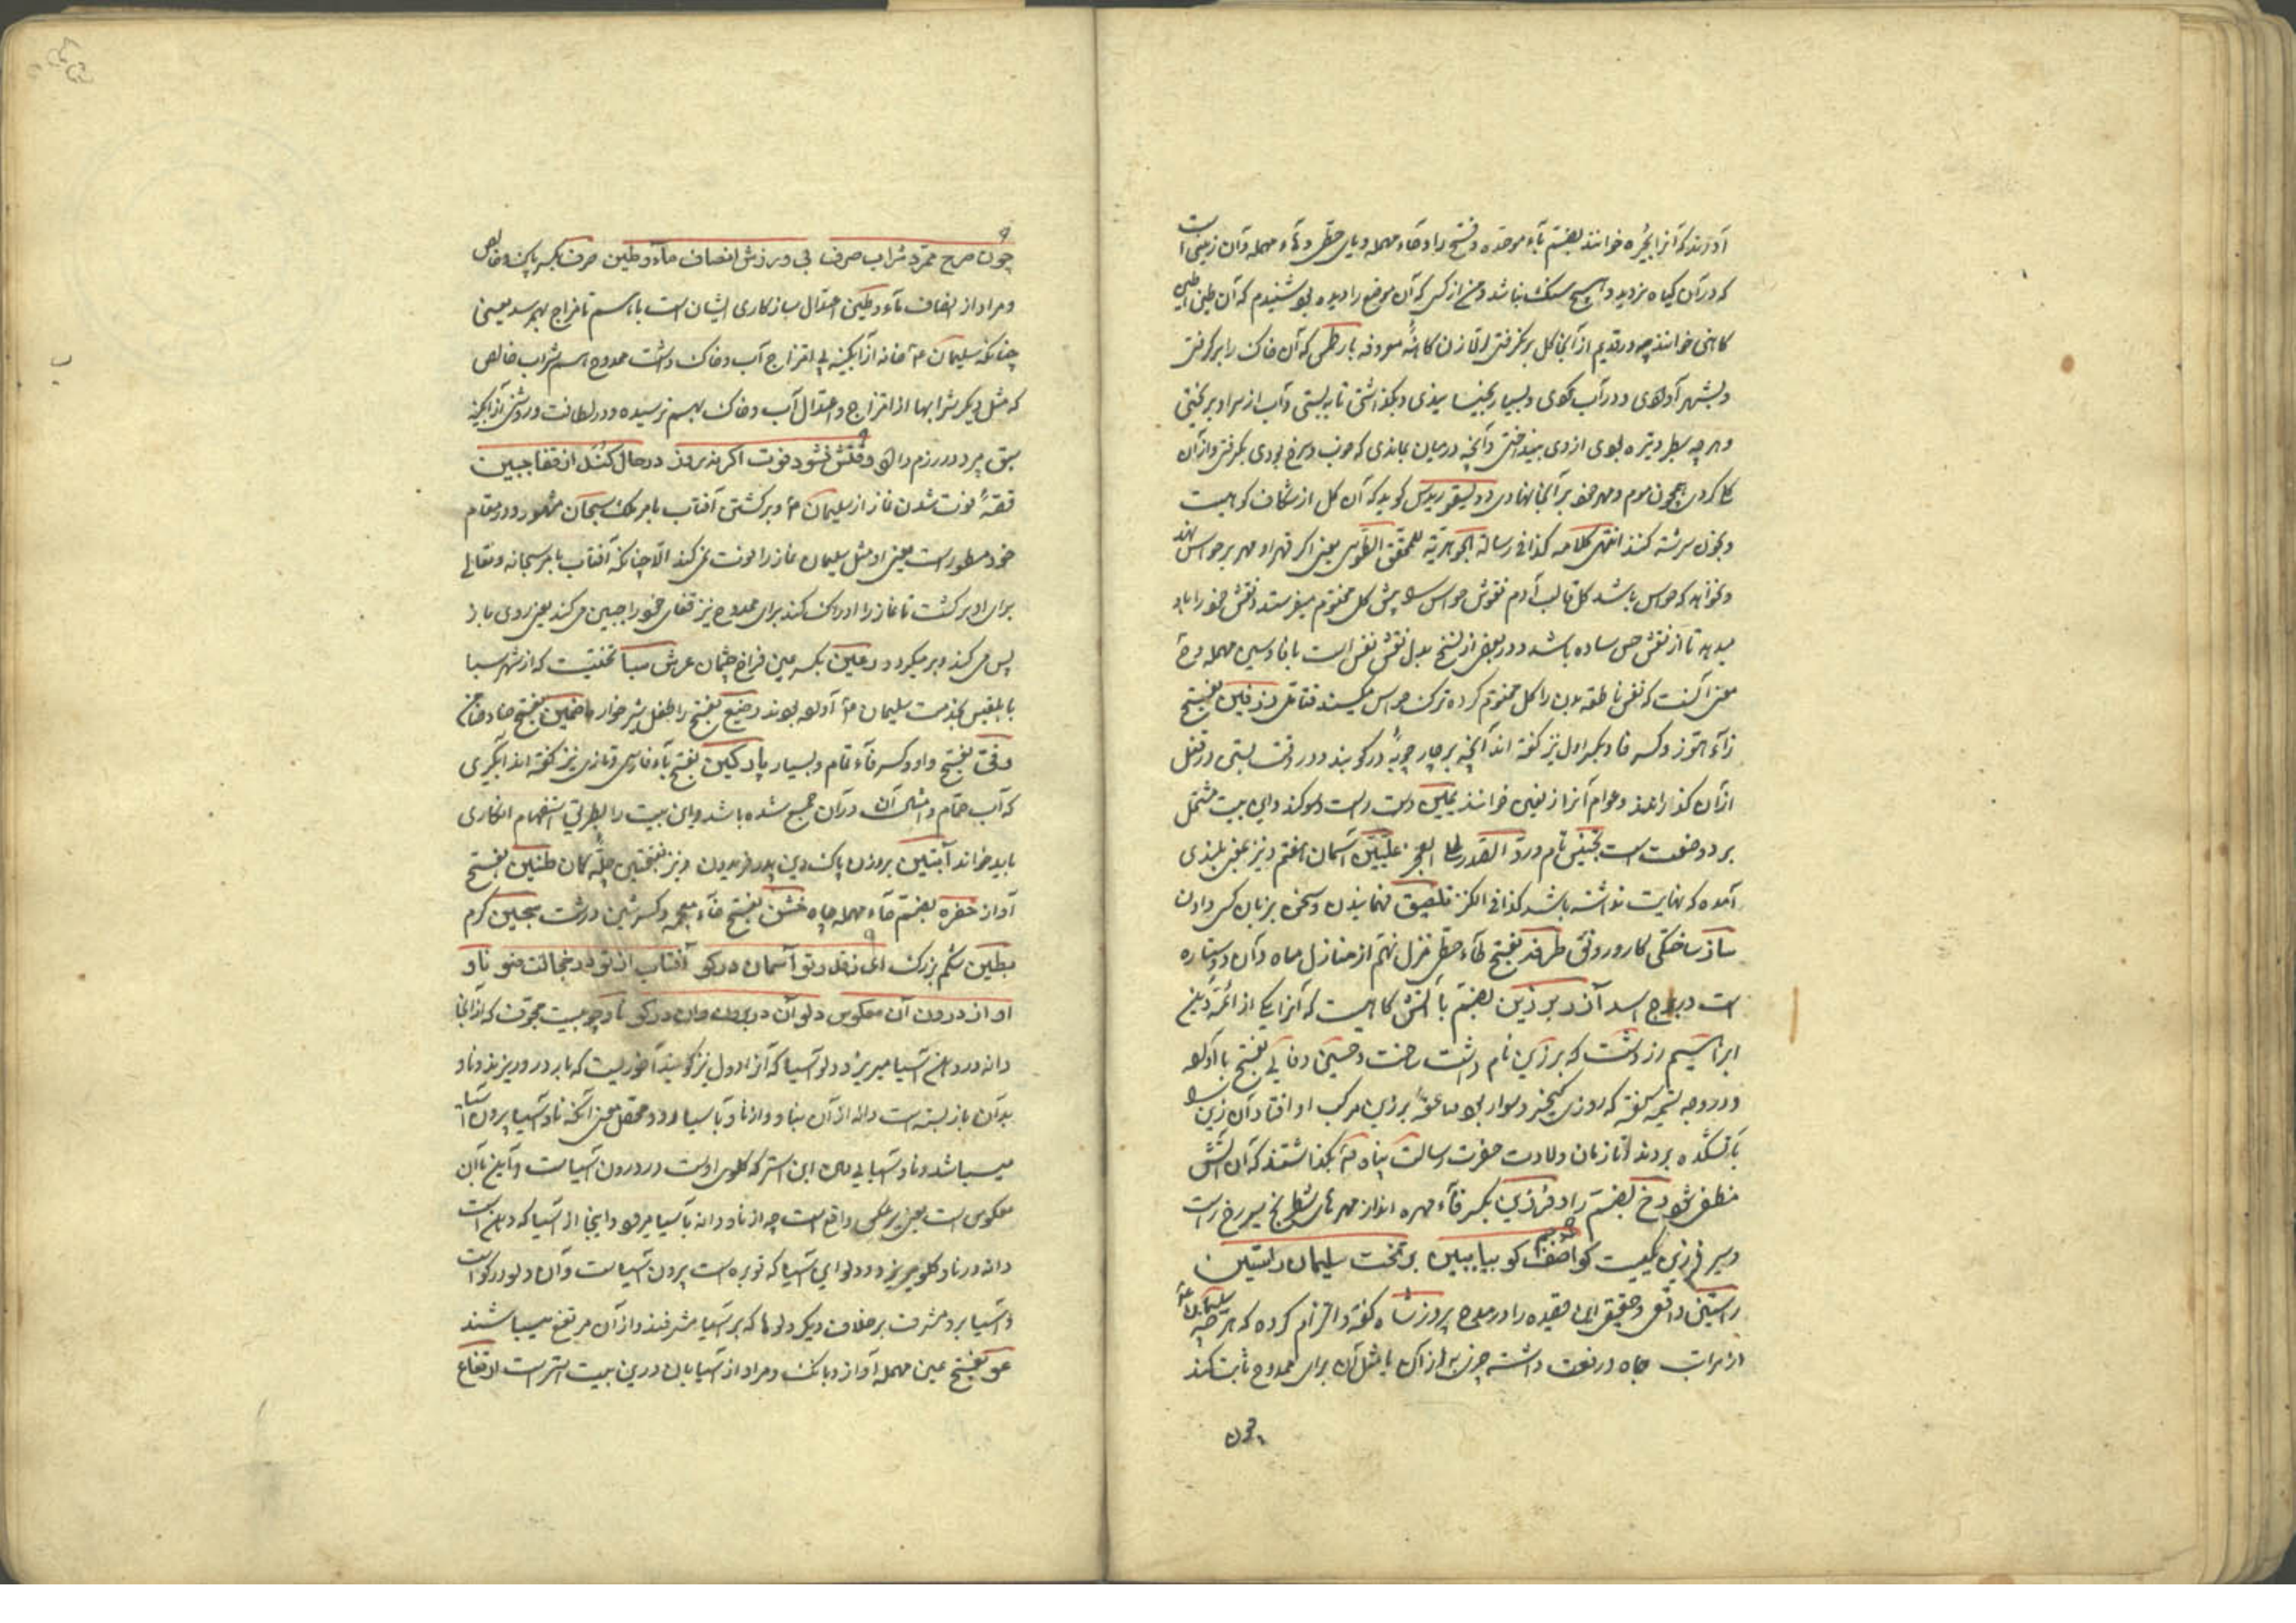 آورند که آنرا بحیره خوانند بضم باء موحده و فتح را و حاء مهمله و یای حطی و هاء مهمله و آن زمینی است
که در آن گیاه نروید و هیچ سنگ نباشد و من از کسی که آن موضع را دیده بود شنیدم که آن طین را طین
کاهنی خوانند چه در قدیم از آنجا گل برنگرفتی الا زن کاهنه معروفه بارطمی که آن خاک را برگرفتی
و بشهر آوردی و در آب کردی و بسیار بجنبانیدی و بگذاشتی تا به نشستی و آب از سر او بریختی
و هر چه سطبر و تیره بودی از وی بینداختی و آنچه در میان بماندی که خوب و سرخ بودی بگرفتی و از آن
گل کردی همچون موم و مهر خود بر آنجا نهادی و دیسقوریدس گوید که آن گل از شکاف کوهیست
و بخون سرشته کنند انتهی کلامه کذا فی رسالة الجوهریة للمحقق الطوسی یعنی اگر قهر او مهر بر حواس نهد
و نخواهد که حواس باشد گل قالب آدم نقوش حواس را پیش گل مختوم میفرستد و نقش خود را باو
میدهد تا از نقش حس ساده باشد و در بعضی از نسخ بدل نقش نفس است با فا و سین مهمله
معنی آنست که نفس ناطقه بدن را گل مختوم کرده ترک حواس میکند فتأمل زرفین بفتح
زاء هوز و کسر فا و بکسر اول نیز گفته اند آنچه بر چارچوبه در کوبند و در وقت بستن در قفل
از آن گذرانند و عوام آنرا زلفین خوانند یمین دست راست و سوگند و این بیت مشتمل
بر دو صنعت است تجنیس تام و رد الصدر الی العجز علیین آسمان هفتم و نیز بمعنی بلندی
آمده که نهایت نداشته باشد کذا فی الکنز تلقین فهمانیدن و سخن بزبان کسی دادن
ساز ساختگی کار و رونق طرفه بفتح طاء حطی منزل نهم از منازل ماه و آن دو ستاره
است در برج اسد آذر برزین بضم با آتش گاهیست که آنرا یکی از ائمه دین
ابراهیم زردشت که برزین نام داشت ساخت
و در وجه تسمیه گفته که روزی کیخسرو سوار بود صاعقه بر زین مرکب او افتاد آن زین را
بآتشکده بردند و تا زمان ولادت حضرت رسالت پناه بگذاشتند که آن آتش
منطفی شود رخ بضم را و فرزین بکسر فاء مهره از مهرهای شطرنج سیر رخ راست
و سیر فرزین کجست کو آصف جم کو بیا ببین بر تخت سلیمان راستین
راستین واقعی و حقیقی این قصیده را در مدح پیروز شاه گفته و التزام کرده که هر چه سلیمان
از مراتب جاه و رفعت داشته چیزی به از آن یا مثل آن برای ممدوح ثابت کند
چون
چون صرح ممرد شراب صرف بی ورزش انصاف ماء و طین صرف بکسر پاک و خالص
و مراد از انصاف ماء و طین اعتدال سازکاری ایشان است با هم تا مزاج بهم رسد یعنی
چنانکه سلیمان خانه از آبگینه بی امتزاج آب و خاک داشت ممدوح هم شراب خالص
که مثل دیگر شرابها از امتزاج و اعتدال آب و خاک بهم نرسیده و در لطافت و روشنی از آبگینه
سبق برد دارد وقتش نشود فوت اگر نه روز در حال کند از قفا جبین
قصه فوت شدن نماز از سلیمان و برگشتن آفتاب بامر ملک سبحان مشهور و در مقام
خود مسطور است یعنی او مثل سلیمان نماز را فوت نمی کند الا چنانکه آفتاب بامر سبحانه و تعالی
برای او برگشت تا نماز را ادراک کند برای ممدوح نیز قفای خود را جبین می کند یعنی روی باز
پس می کند و بر میگردد عین بکسر عین فراخ چشمان عرش سبا تختیست که از شهر سبا
با بلقیس بخدمت سلیمان آورده بودند رضیع بفتح را طفل شیرخوار
وفی بفتح واو و کسر فاء تمام و بسیار پارگین بفتح باء فارسی و تازی نیز گفته اند آبگیری
که آب حمام و امثال آن در آن جمع شده باشد و این بیت را بطریق استفهام انکاری
باید خواند آبتین بر وزن پاک دین پدر فریدون و نیز بفتحتین چله کمان طنین بفتح
آواز حفره بضم حاء مهمله چاه خشن بفتح خاء معجمه و کسر شین درشت سجین گرم
بطین شکم بزرگ ای در نقل و تو آسمان در گو آفتاب از تو در خجالت ضو ناو
او از درون آن معکوس دلو آن در برون وان در گو ناو چوبیست مجوف که از آنجا
دانه در دهن آسیا میریزد و دلو آسیا که آنرا دول نیز گویند آخوریست که بار در و ریزند و ناو
بدآن باز بسته است دانه از آن بناو و از ناو بآسیا رود و محصل معنی آنکه ناو آسیا بیرون آسیا
میباشد و ناو آسیای این استر که گلوی اوست در درون آسیاست و آسیا با آن
معکوس است یعنی بر عکس واقع است چه از ناو دانه بآسیا میرود و اینجا از آسیا که دهن است
دانه در ناو گلو میریزد و دلو این آسیا که توبره است بیرون آسیاست و آن دلو در گو است
و آسیا بر او مشرف بر خلاف دیگر دلوها که بر آسیا مشرفند و از آن مرتفع میباشند
عو بفتح عین مهمله آواز و بانگ و مراد از آسیا بان درین بیت استر است ارتفاع